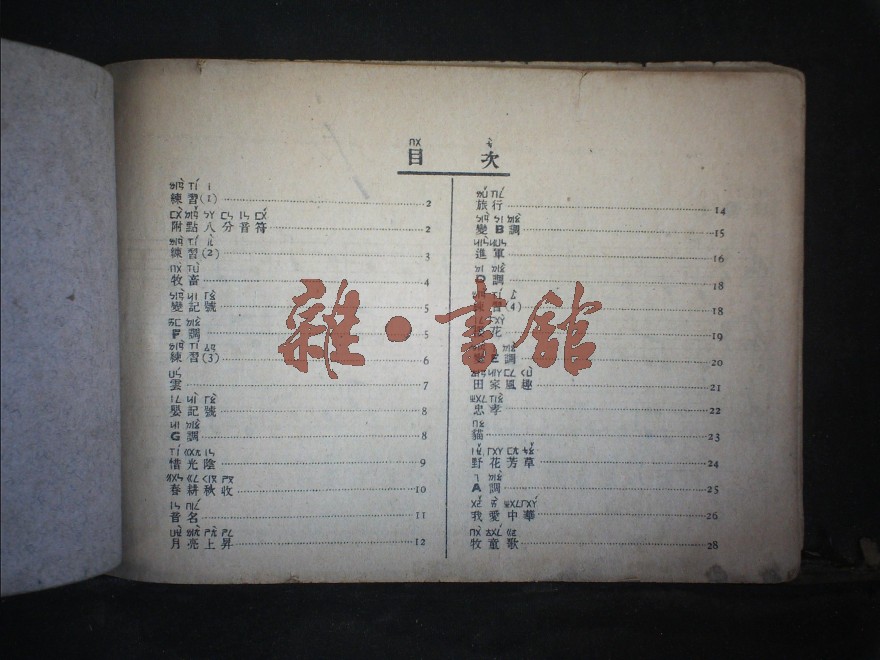 目次
練習(1) 2
附點八分音符 2
練習(2) 3
牧畜 4
變記號 5
F調 5
練習(3) 6
雲 7
嬰記號 8
G調 8
惜光陰 9
春耕秋收 10
音名 11
月亮上昇 12
旅行 14
變B調 15
進軍 16
D調 18
練習(4) 18
花 19
變E調 20
田家風趣 21
忠孝 22
貓 23
野花芳草 24
A調 25
我愛中華 26
牧童歌 28
雜·書館